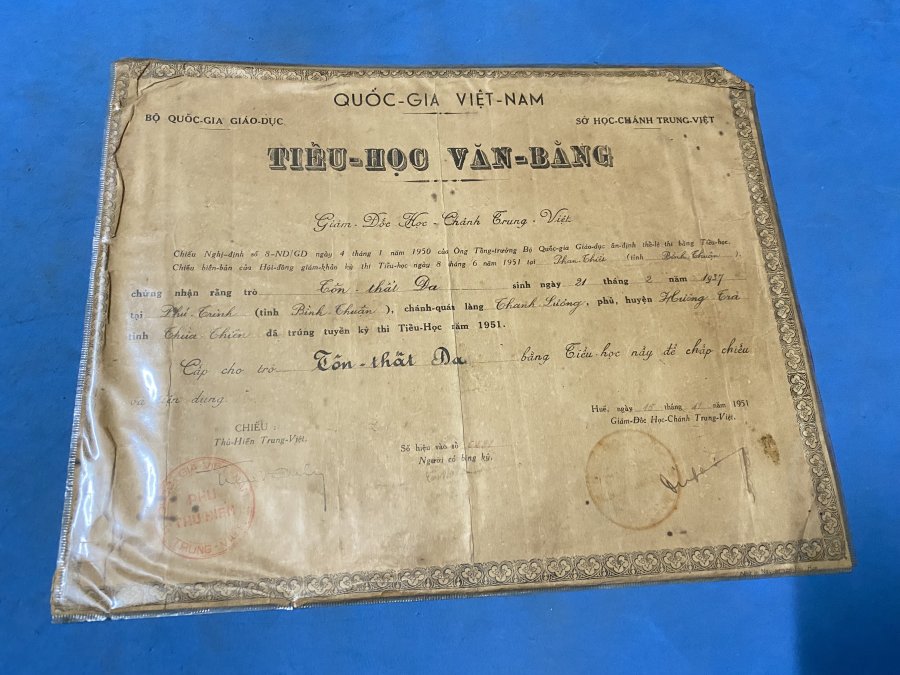 QUỐC-GIA VIỆT-NAM
BỘ QUỐC-GIA GIÁO-DỤC
SỞ HỌC-CHÁNH TRUNG-VIỆT
TIỂU-HỌC VĂN-BẰNG
Giám-Đốc Học-Chánh Trung-Việt
Chiếu Nghị-định số 8-ND/GD ngày 4 tháng 1 năm 1950 của Ông Tổng-trưởng Bộ Quốc-gia Giáo-dục ấn-định thể-lệ thi bằng Tiểu-học.
Chiếu biên-bản của Hội-đồng giám-khảo kỳ thi Tiểu-học ngày 8 tháng 6 năm 1951 tại Phan-Thiết (tỉnh Bình Thuận ).
chứng nhận rằng trò Tôn-thất Da sinh ngày 21 tháng 2 năm 1937
tại Phú-Trinh (tỉnh Bình Thuận ), chánh-quát làng Thanh Lương, phủ, huyện Hương Trà
tỉnh Thừa Thiên đã trúng tuyển kỳ thi Tiểu-Học năm 1951.
Cấp cho trò Tôn-thất Da bằng Tiểu-học nầy để chấp chiếu
và dụng.
Huế, ngày 15 tháng năm 1951
Giám-Đốc Học-Chánh Trung-Việt.
CHIẾU :
Thủ-Hiến Trung-Việt.
Số hiệu vào sổ
Người có bằng ký,
QUỐC GIA VIỆT
PHỦ
THỦ HIẾN
TRUNG-VIỆT